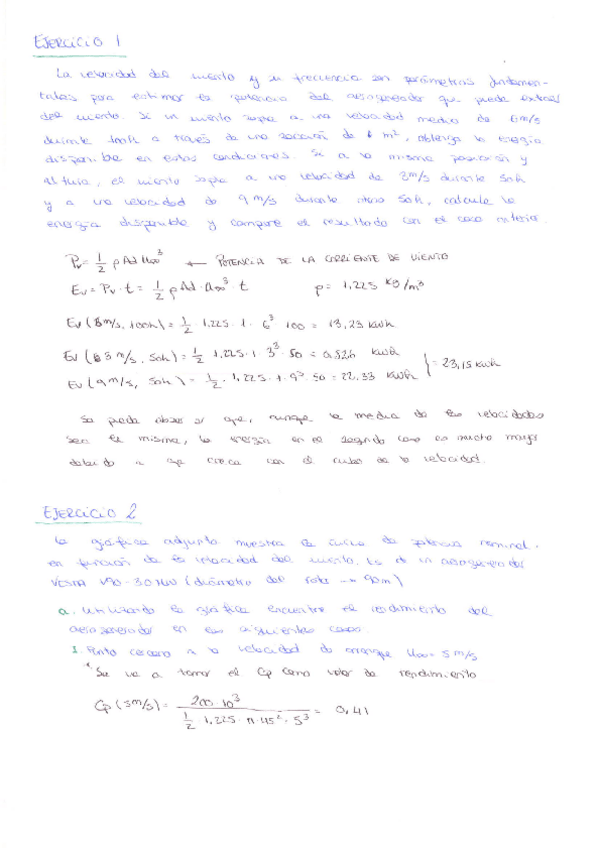 EJERCICIO 1
La velocidad del viento y su frecuencia son parámetros fundamen-
tales para estimar la potencia del aerogenerador que puede extraer
del viento. Si un viento sopla a una velocidad media de 6 m/s
durante 100h a través de una sección de 1 m², obtenga la energía
disponible en estas condiciones. Si a la misma posición y
altura, el viento sopla a una velocidad de 3 m/s durante 50h
y a una velocidad de 9 m/s durante otras 50h, calcule la
energía disponible y compare el resultado con el caso anterior.
Pv = 1/2 ρ Ad U∞³ ← POTENCIA DE LA CORRIENTE DE VIENTO
Ev = Pv · t = 1/2 ρ Ad · U∞³ · t ρ = 1,225 kg/m³
Ev (6 m/s, 100h) = 1/2 · 1,225 · 1 · 6³ · 100 = 13,23 kWh
Ev (3 m/s, 50h) = 1/2 · 1,225 · 1 · 3³ · 50 = 0,826 kWh
Ev (9 m/s, 50h) = 1/2 · 1,225 · 1 · 9³ · 50 = 22,33 kWh } = 23,15 kWh
Se puede observar que, aunque la media de las velocidades
sea la misma, la energía en el segundo caso es mucho mayor
debido a que crece con el cubo de la velocidad.
EJERCICIO 2
La gráfica adjunta muestra la curva de potencia nominal
en función de la velocidad del viento, U∞ de un aerogenerador
VESTA V90-3.0 MW (diámetro del rotor → 90 m)
a. Utilizando la gráfica encuentre el rendimiento del
aerogenerador en los siguientes casos
1. Punto cercano a la velocidad de arranque U∞ = 5 m/s
* Se va a tomar el Cp como valor de rendimiento
Cp (5 m/s) = 200 · 10³ / (1/2 · 1,225 · π · 45² · 5³) = 0,41